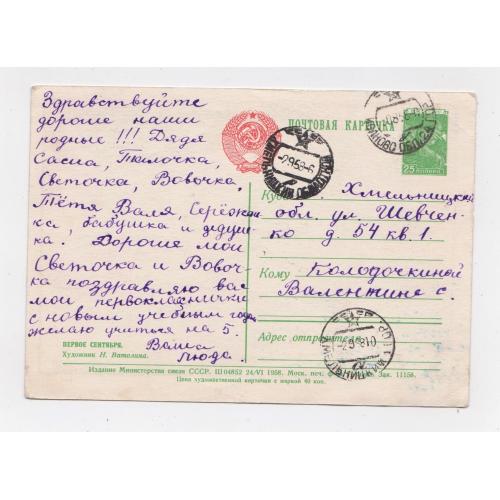 Здравствуйте
дорогие наши
родные!!! Дядя
Саша, Томочка,
Светочка, Вовочка.
Тётя Валя, Сережень-
ка, бабушка и дедуш-
ка. Дорогие мои
Светочка и Вовоч-
ка поздравляю вас
мои первокласнички
с новым учебным годом
желаю учиться на 5.
Ваша
Люда.
ПЕРВОЕ СЕНТЯБРЯ.
Художник Н. Ватолина.
ПОЧТОВАЯ КАРТОЧКА
25 КОПЕЕК
Куда Хмельницкий
обл. ул. Шевчен-
ко д. 54 кв. 1.
Кому Колодочкиной
Валентине С.
Адрес отправителя
Издание Министерства связи СССР. Ш 04852 24/VI 1958. Моск. печ. Зак. 11158.
Цена художественной карточки с маркой 40 коп.